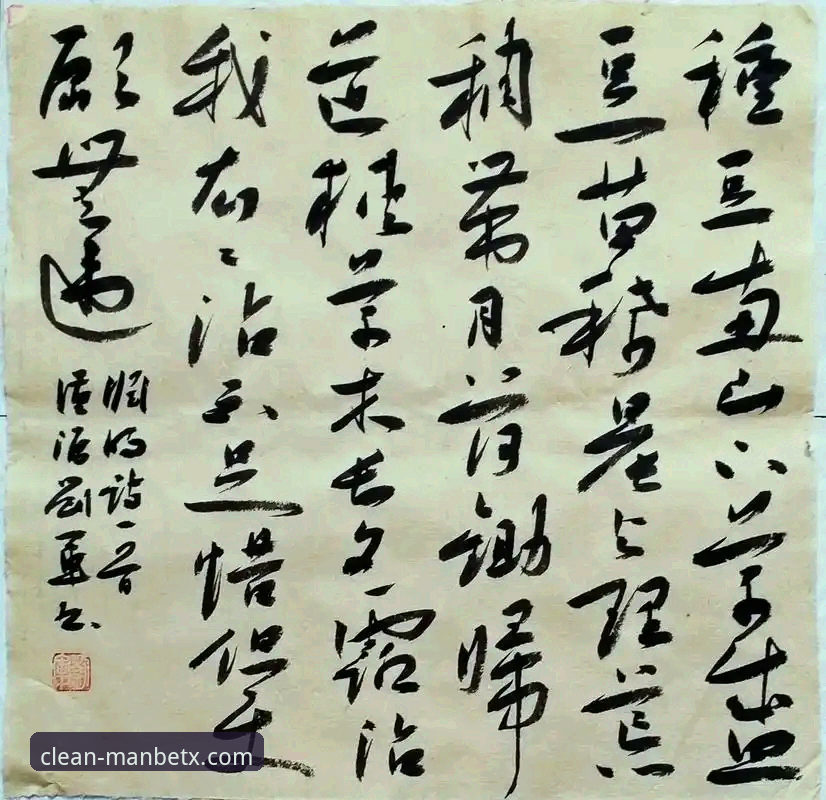 種豆南山下草盛
豆苗稀晨興理荒
穢帶月荷鋤歸
道狹草木長夕露沾
我衣〻沾不足惜但使
願無違
淵明詩一首
劉軍書
clean-manbetx.com